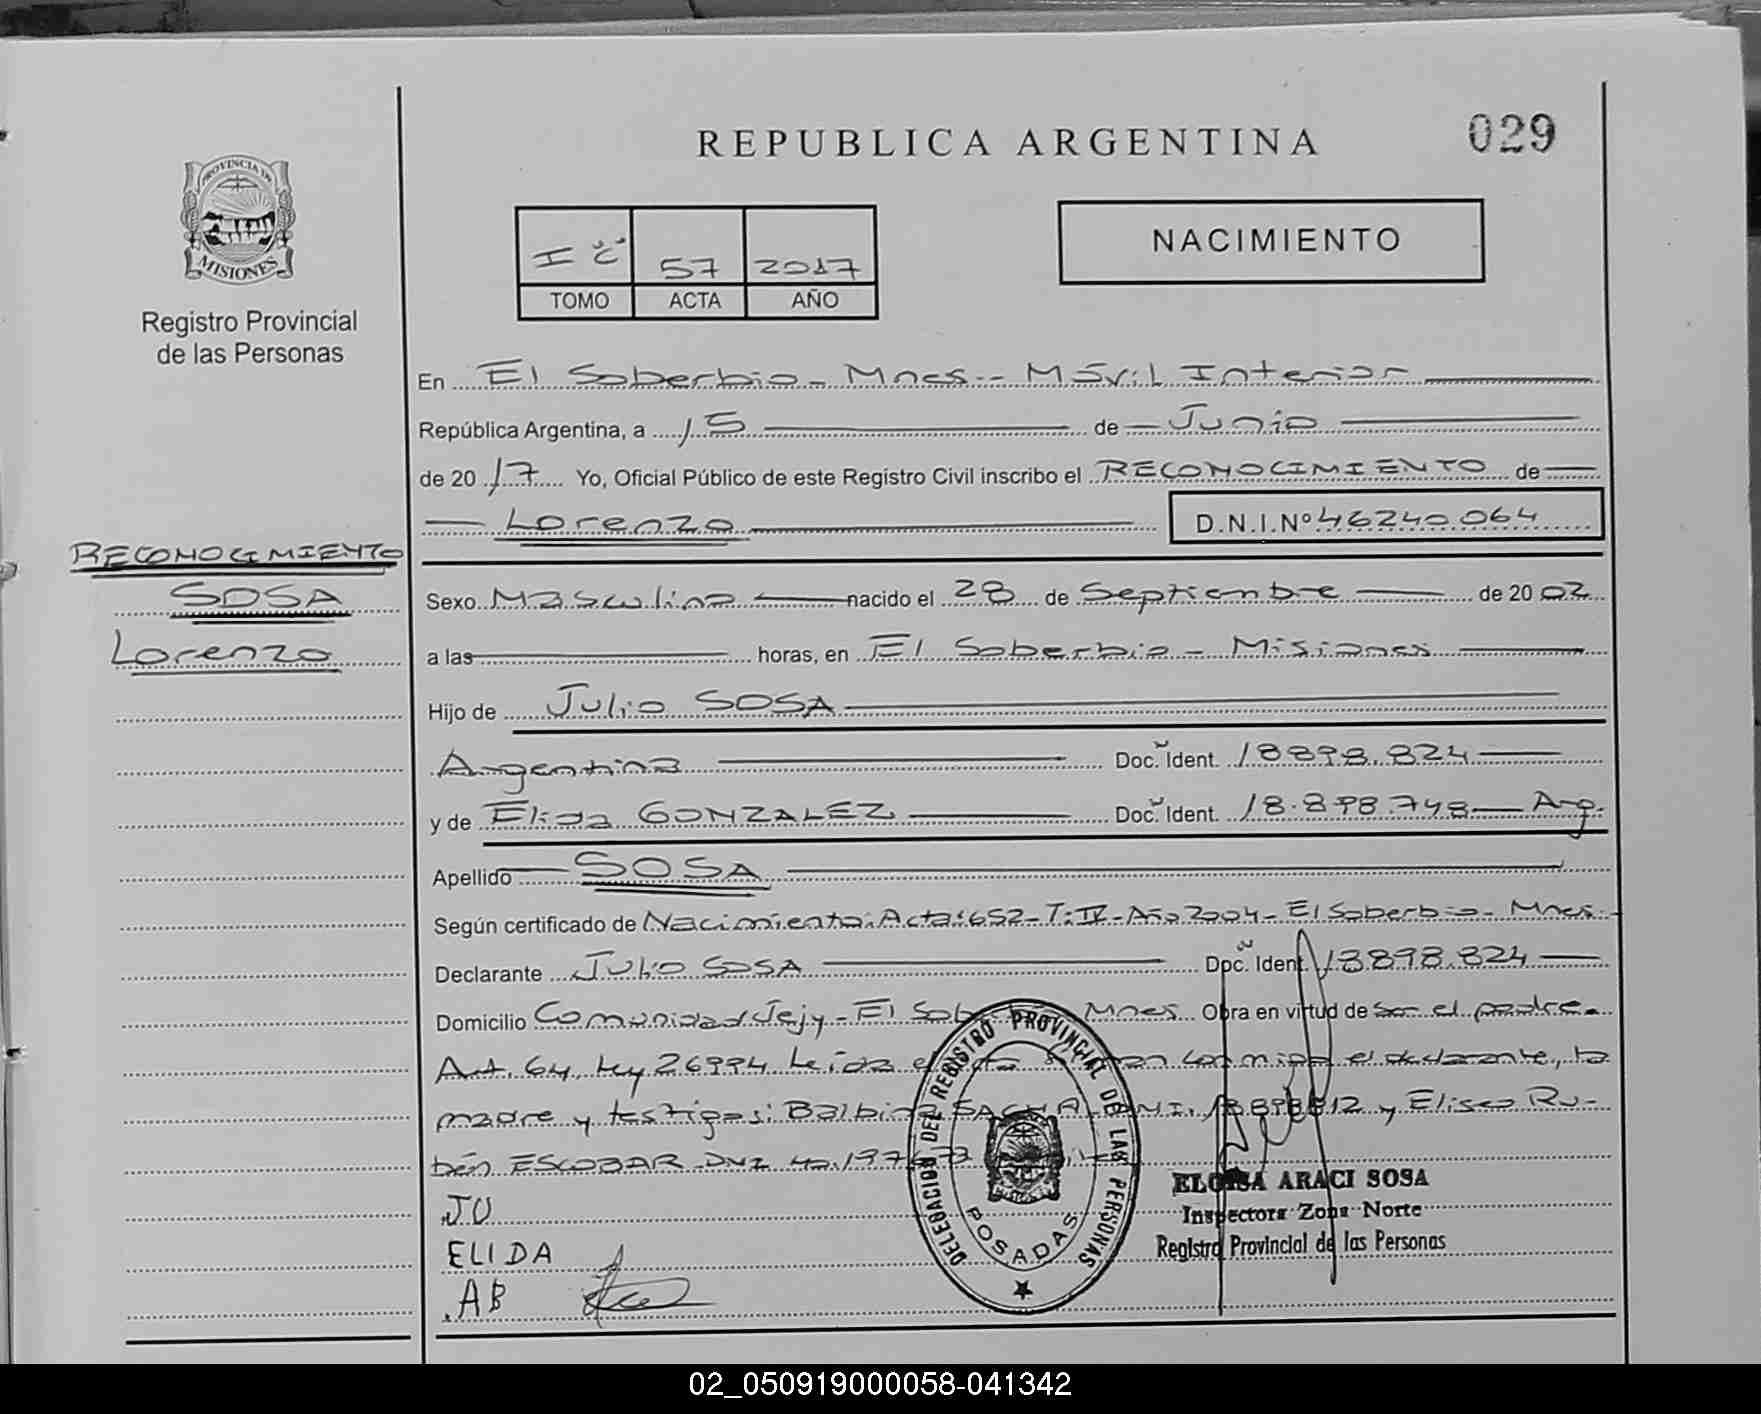 REPUBLICA ARGENTINA
029
PROVINCIA DE
MISIONES
Registro Provincial
de las Personas
I "C" 57 2017
TOMO ACTA AÑO
NACIMIENTO
En El Soberbio - Mnes.- Móvil Interior
República Argentina, a 15 de Junio
de 2017 Yo, Oficial Público de este Registro Civil inscribo el RECONOCIMIENTO de
Lorenzo D.N.I.Nº 46240.064
RECONOCIMIENTO
SOSA
Lorenzo
Sexo Masculino nacido el 28 de Septiembre de 2002
a las horas, en El Soberbio - Misiones
Hijo de Julio SOSA
Argentina Doc. Ident. 18898.824
y de Elida GONZALEZ Doc. Ident. 18.898.748 Arg.
Apellido SOSA
Según certificado de Nacimiento: Acta: 652 - T: IV - Año 2004 - El Soberbio - Mnes.-
Declarante Julio SOSA Doc. Ident. 18898.824
Domicilio Comunidad Jejy - El Mnes. Obra en virtud de ser el padre.
Art. 64, Ley 26994 Leida el conmigo el declarante, la
madre y testigos: y Eliseo Ru-
bén ESCOBAR DNI
JU
ELIDA
AB
DELEGACION DEL REGISTRO PROVINCIAL DE LAS PERSONAS
POSADAS
ELOISA ARACI SOSA
Inspectora Zona Norte
Registro Provincial de las Personas
02_050919000058-041342